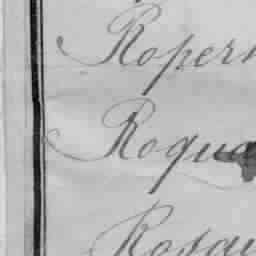 Roper
Roqu
Rosa